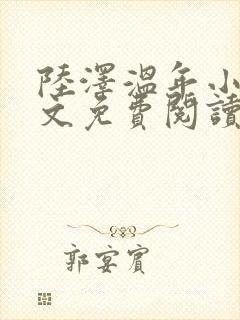 陸澤溫年小
文免費閱讀
郭宴賓